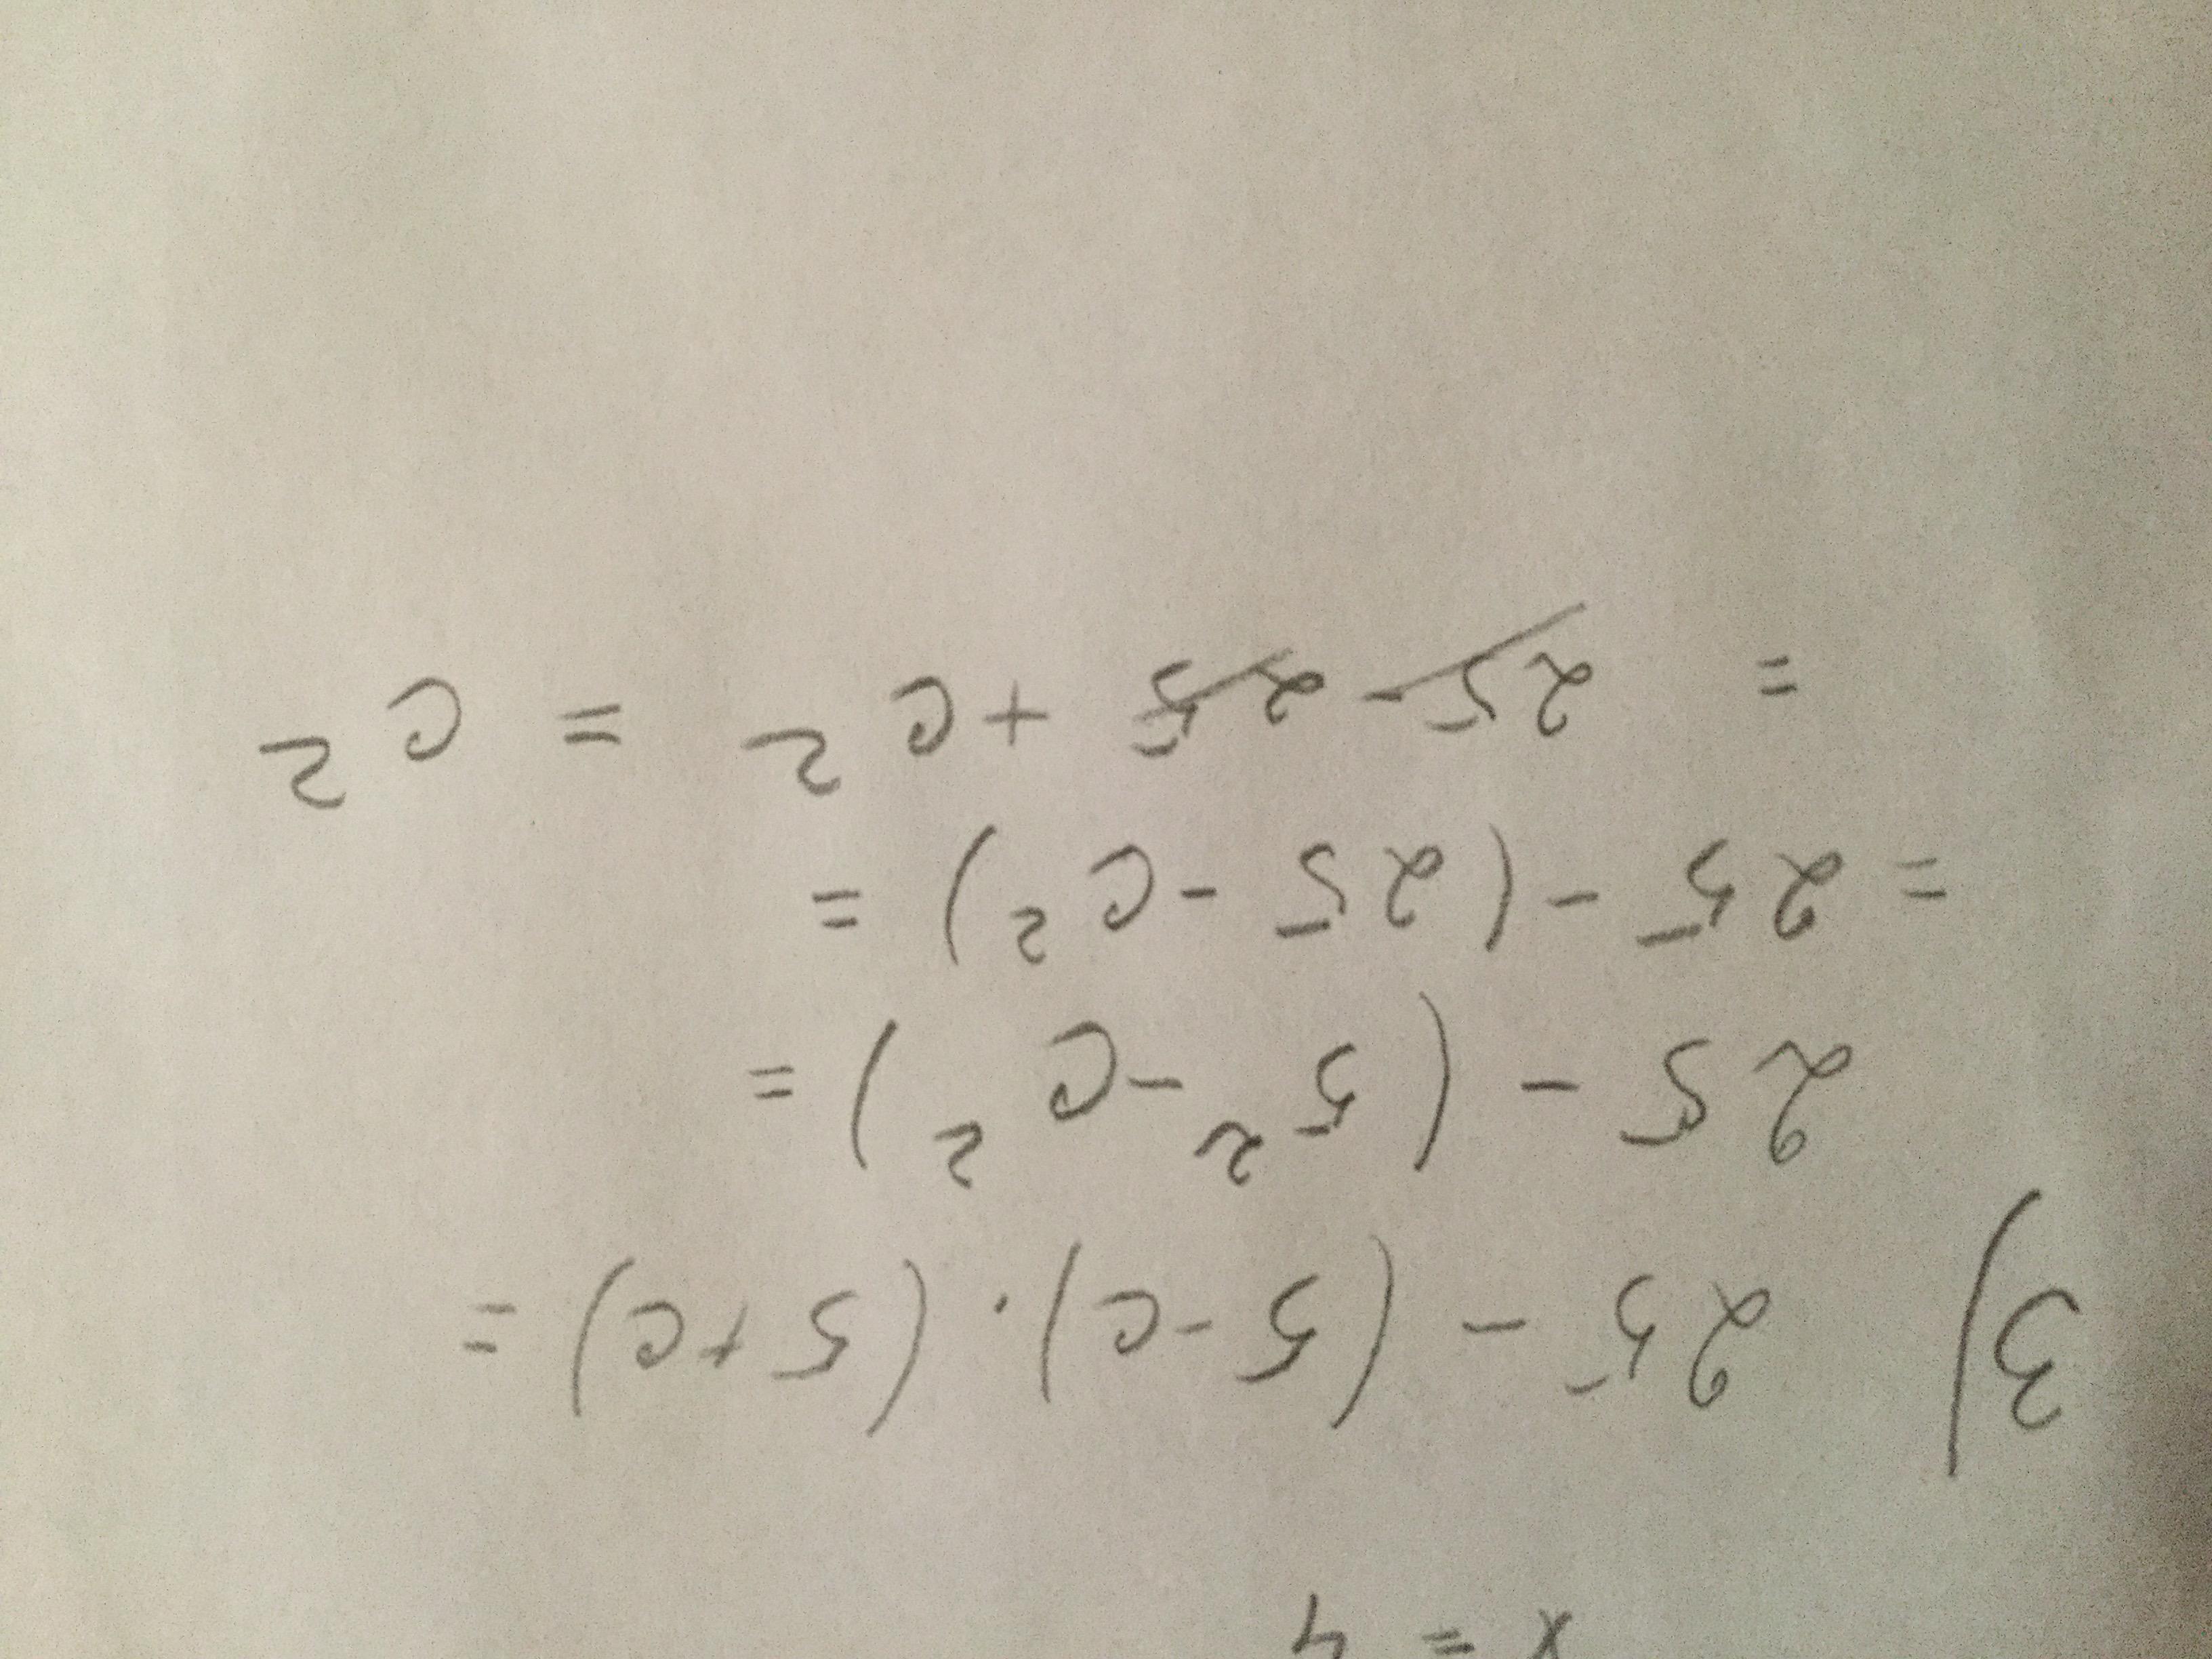 x = 4
3) 25 - (5-c)·(5+c) =
25 - (5² - c²) =
= 25 - (25 - c²) =
= 25 - 25 + c² = c²